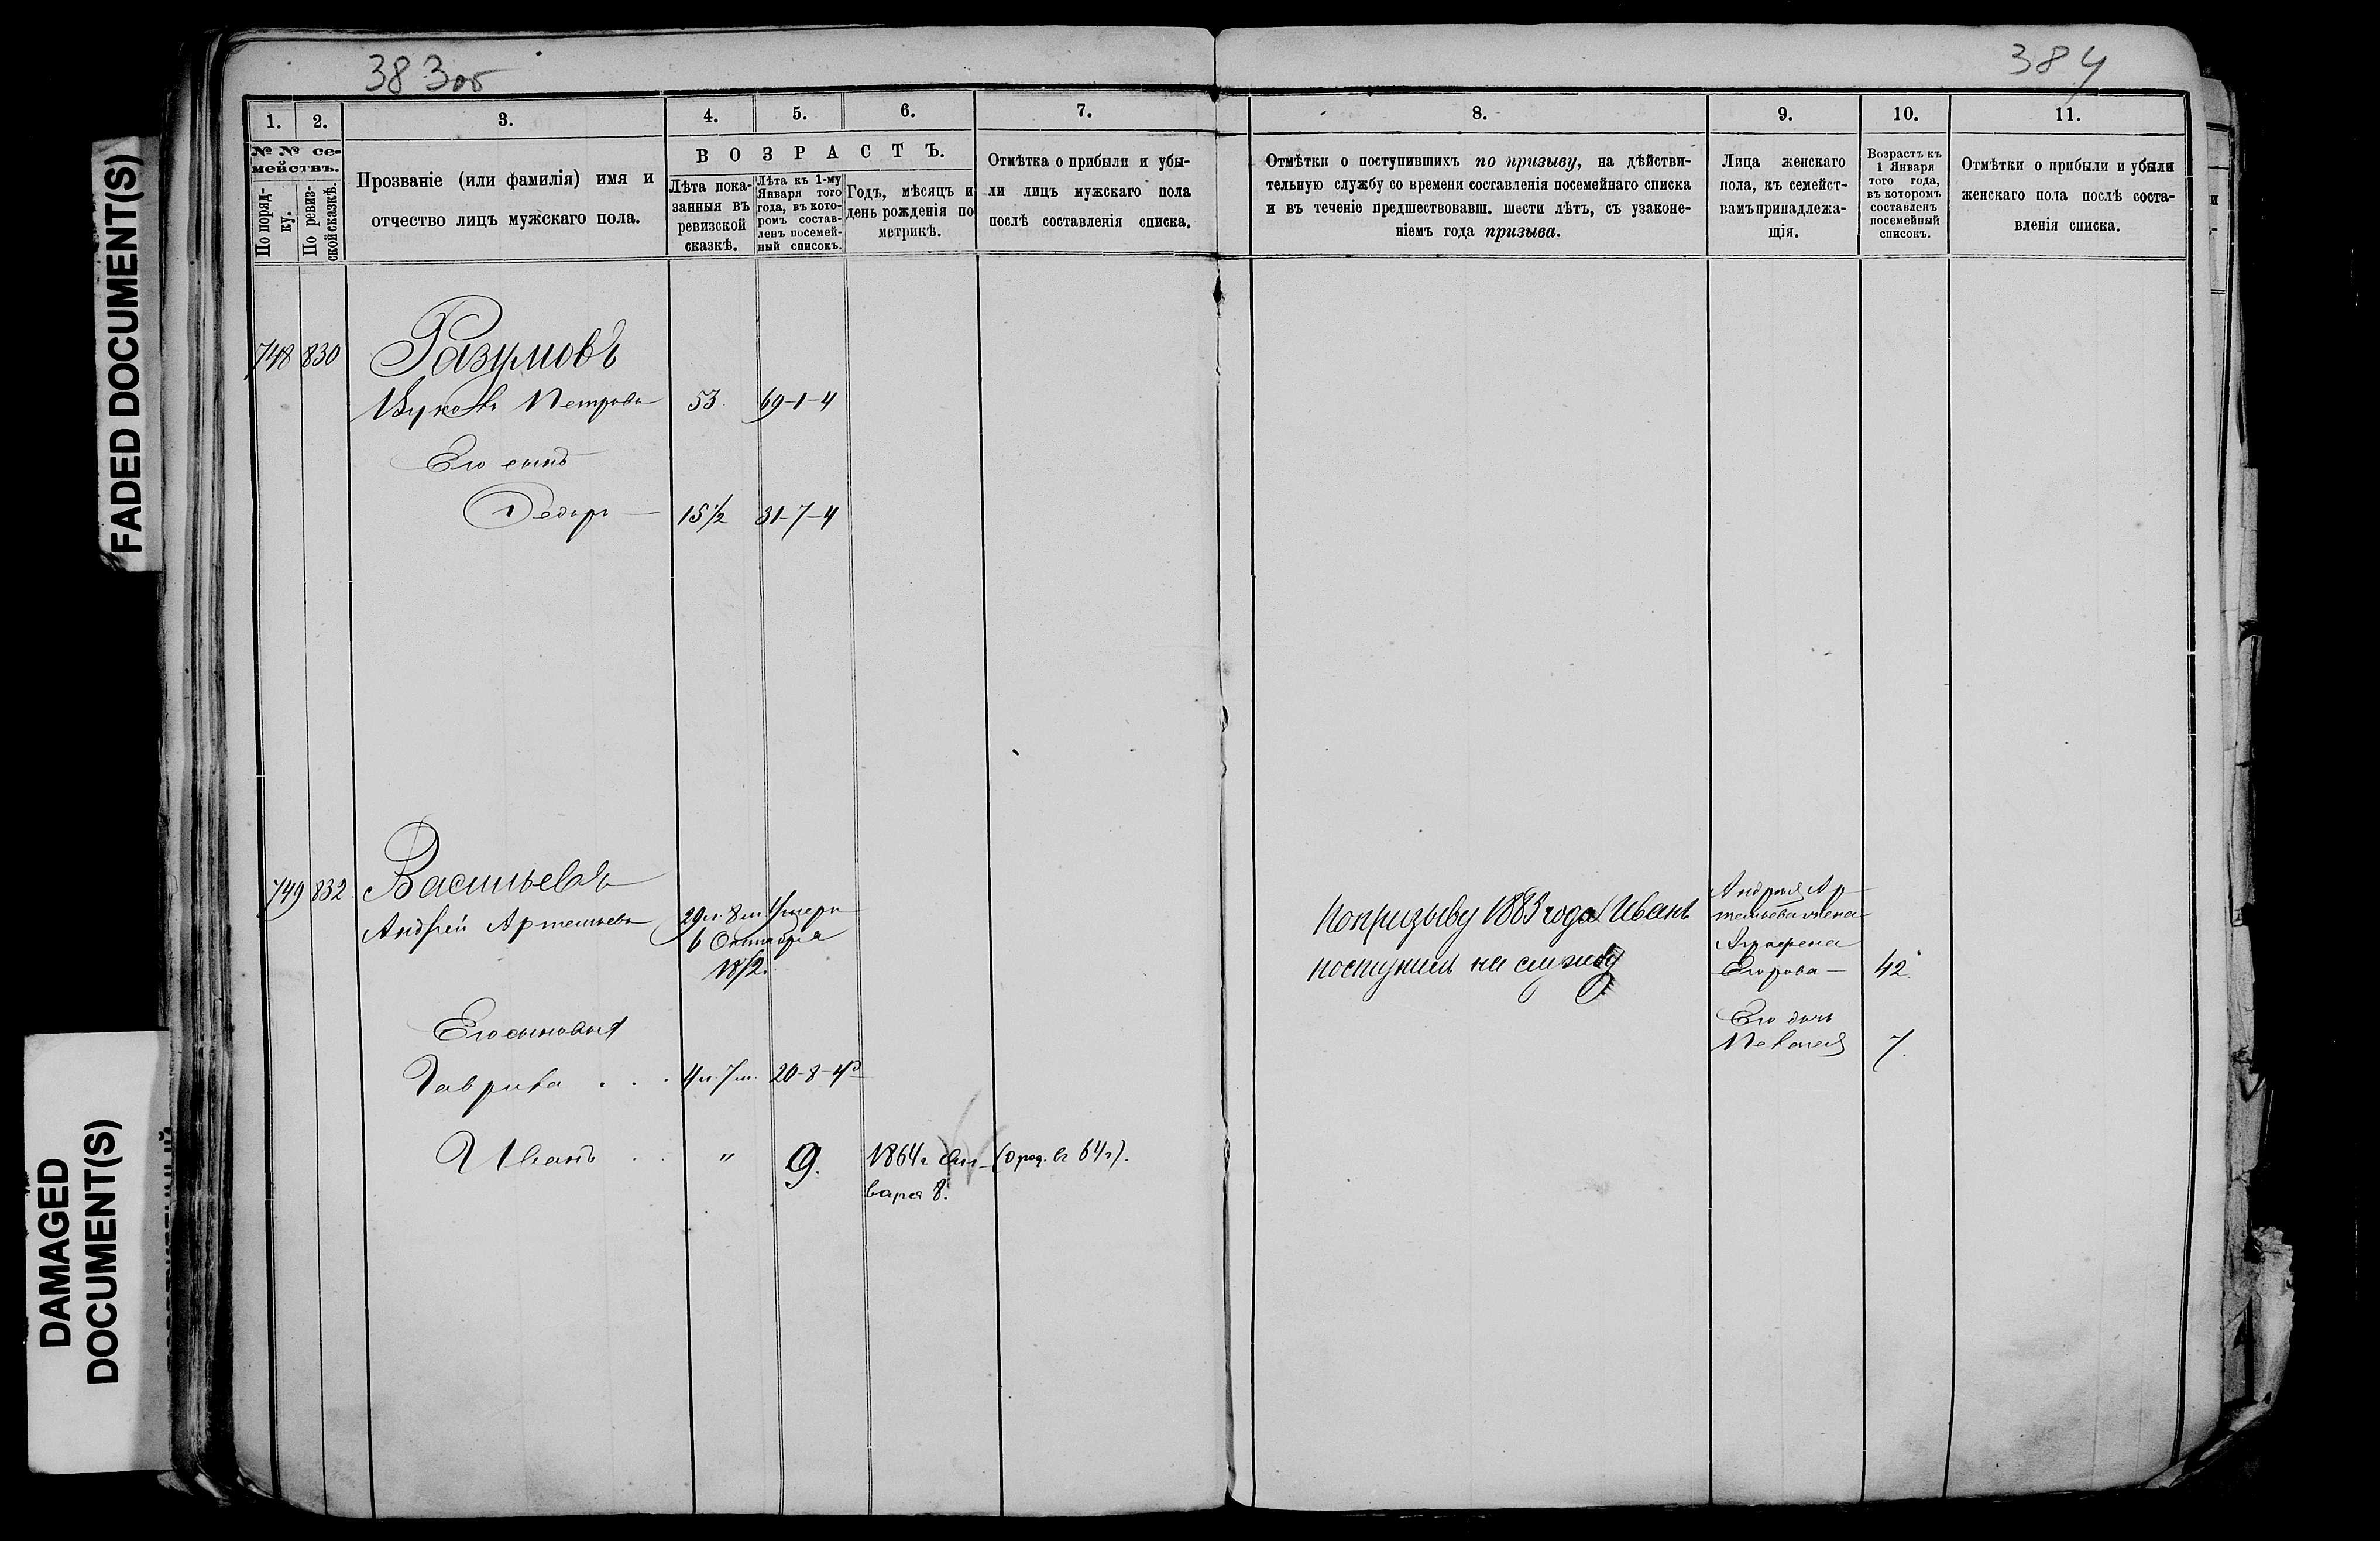 383об
384
1. 2. 3. 4. 5. 6. 7. 8. 9. 10. 11.
№ № се-
мействъ.
По поряд-
ку.
По ревиз-
ской сказкѣ.
Прозваніе (или фамилія) имя и
отчество лицъ мужскаго пола.
ВОЗРАСТЪ.
Лѣта пока-
занныя въ
ревизской
сказкѣ.
Лѣта къ 1-му
Января того
года, въ кото-
ромъ состав-
ленъ посемей-
ный списокъ.
Годъ, мѣсяцъ и
день рожденія по
метрикѣ.
Отмѣтка о прибыли и убы-
ли лицъ мужскаго пола
послѣ составленія списка.
Отмѣтки о поступившихъ по призыву, на дѣйстви-
тельную службу со времени составленія посемейнаго списка
и въ теченіе предшествовавш. шести лѣтъ, съ узаконе-
ніемъ года призыва.
Лица женскаго
пола, къ семейст-
вамъ принадлежа-
щія.
Возрастъ къ
1 Января
того года,
въ которомъ
составленъ
посемейный
списокъ.
Отмѣтки о прибыли и убыли
женскаго пола послѣ соста-
вленія списка.
748 830 Разумовъ
Петровъ 53. 69-1-4
Его сынъ
Федоръ 15½ 31-7-4
749 832. Васильевъ
Андрей Артемьевъ 29 л. 8 м. Умеръ
6 Октября
1872.
Его сыновья
Гаврила . . . 4 л. 7 м. 20-8-4
Иванъ . . " 9. 1864г Ян- (0 ред. въ 64г).
варя 8.
По призыву 1885 года Иванъ
поступилъ на службу
Андрея Ар-
темьева жена
Аграфена
Егорова 42.
Его дочь
Пелагея 7.
FADED DOCUMENT(S)
DAMAGED
DOCUMENT(S)